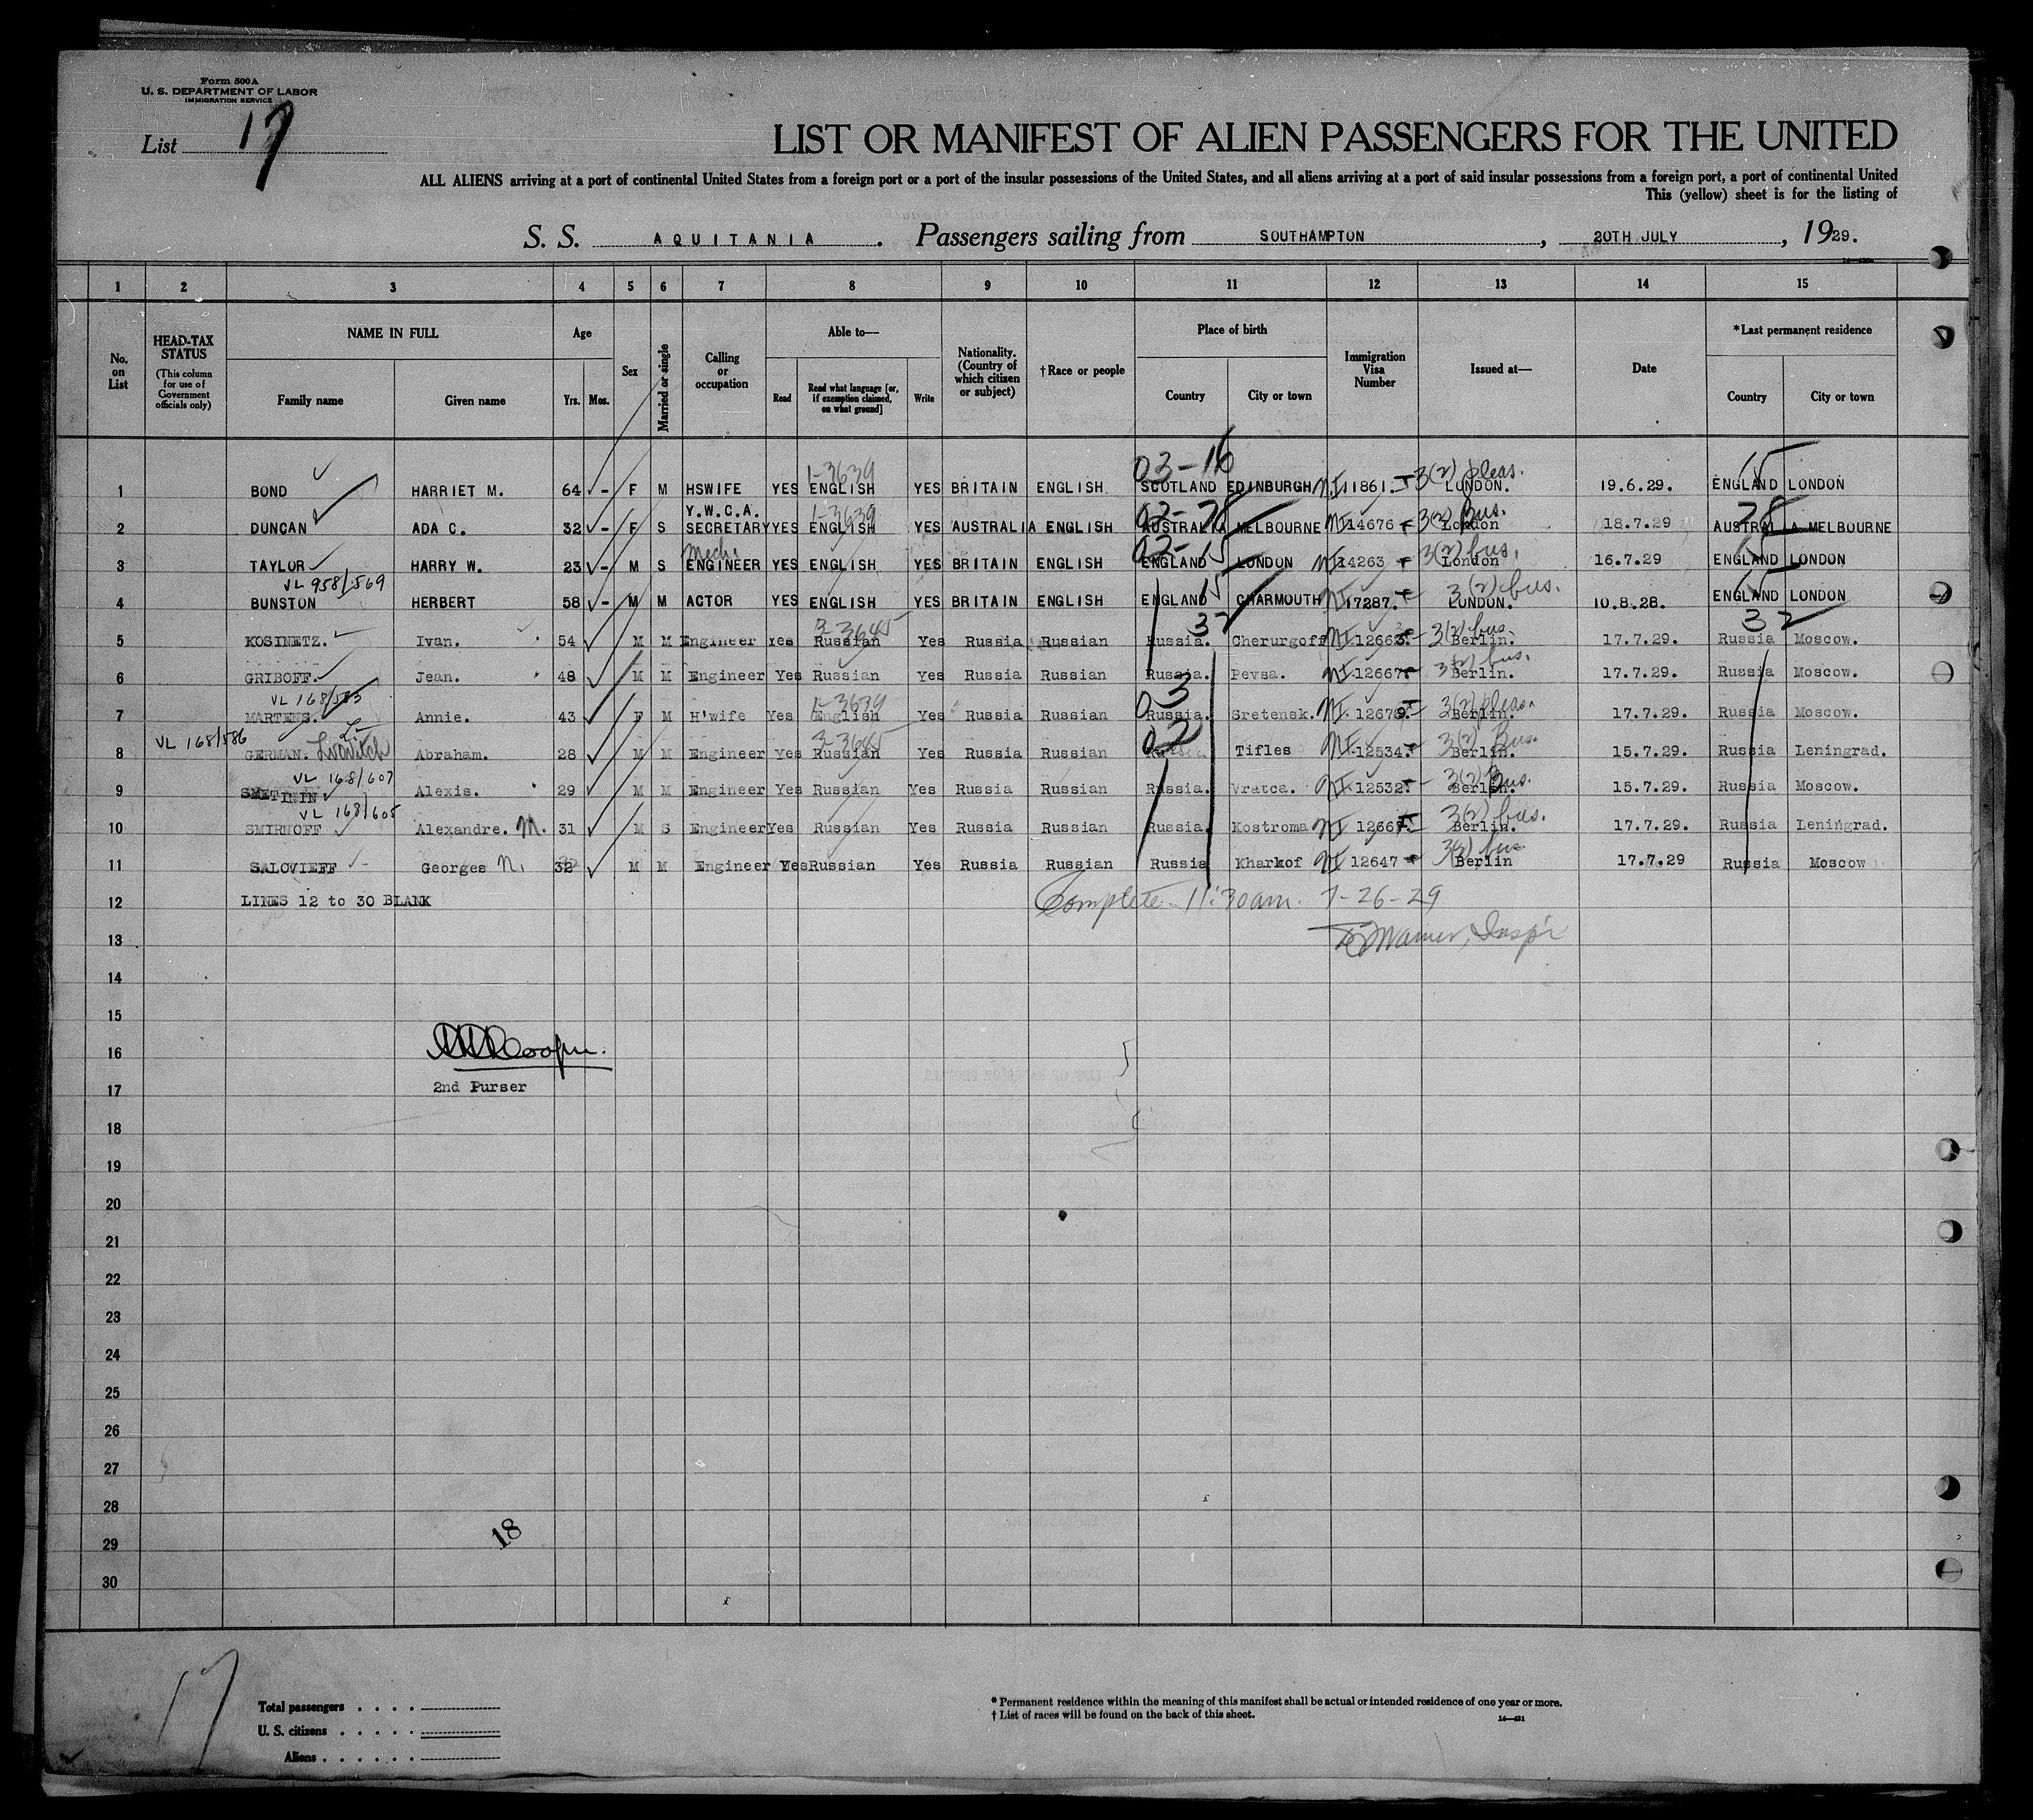 Form 500A
U. S. DEPARTMENT OF LABOR
IMMIGRATION SERVICE
List 17
LIST OR MANIFEST OF ALIEN PASSENGERS FOR THE UNITED
ALL ALIENS arriving at a port of continental United States from a foreign port or a port of the insular possessions of the United States, and all aliens arriving at a port of said insular possessions from a foreign port, a port of continental United
This (yellow) sheet is for the listing of
S. S. AQUITANIA . Passengers sailing from SOUTHAMPTON , 20TH JULY , 1929.
1 2 3 4 5 6 7 8 9 10 11 12 13 14 15
No. on List
HEAD-TAX STATUS (This column for use of Government officials only)
NAME IN FULL Family name Given name
Age Yrs. Mos.
Sex
Married or single
Calling or occupation
Able to— Read Read what language [or, if exemption claimed, on what ground] Write
Nationality. (Country of which citizen or subject)
†Race or people
Place of birth Country City or town
Immigration Visa Number
Issued at—
Date
*Last permanent residence Country City or town
1-3639 03-16 3(2) pleas. 15
1 BOND HARRIET M. 64 - F M HSWIFE YES ENGLISH YES BRITAIN ENGLISH SCOTLAND EDINBURGH NI 11861. LONDON. 19.6.29. ENGLAND LONDON
Y.W.C.A. 1-3639 02-78 3(2) Bus. 78
2 DUNCAN ADA C. 32 - F S SECRETARY YES ENGLISH YES AUSTRALIA ENGLISH AUSTRALIA MELBOURNE NI 14676 London 18.7.29 AUSTRALIA MELBOURNE
Mech. 02-15 3(2) bus. 15
3 TAYLOR HARRY W. 23 - M S ENGINEER YES ENGLISH YES BRITAIN ENGLISH ENGLAND LONDON NI 14263 London 16.7.29 ENGLAND LONDON
VL 958/569 15 3(2) bus. 15
4 BUNSTON HERBERT 58 - M M ACTOR YES ENGLISH YES BRITAIN ENGLISH ENGLAND CHARMOUTH NI 17287. LONDON. 10.8.28. ENGLAND LONDON
3-3645 32 3(2) bus. 32
5 KOSINETZ. Ivan. 54 M M Engineer Yes Russian Yes Russia Russian Russia. Cherurgoff NI 12663. Berlin. 17.7.29. Russia Moscow.
3(2) bus.
6 GRIBOFF. Jean. 48 M M Engineer Yes Russian Yes Russia Russian Russia. Pevsa. NI 12667 Berlin. 17.7.29. Russia Moscow.
VL 168/583 1-3679 03 3(2) pleas.
7 MARTENS. Annie. 43 F M H'wife Yes English Yes Russia Russian Russia. Sretensk. NI 12679. Berlin. 17.7.29. Russia Moscow.
VL 168/586 3-3645 02 3(2) Bus.
8 GERMAN. Abraham. 28 M M Engineer Yes Russian Yes Russia Russian Tifles NI 12534. Berlin. 15.7.29. Russia Leningrad.
VL 168/607 3(2) Bus.
9 SMETININ Alexis. 29 M M Engineer Yes Russian Yes Russia Russian Russia. Vratca. NI 12532. Berlin. 15.7.29. Russia Moscow.
VL 168/605 3(2) bus.
10 SMIRNOFF Alexandre. M. 31 M S Engineer Yes Russian Yes Russia Russian Russia. Kostroma NI 12667. Berlin. 17.7.29. Russia Leningrad.
3(2) bus
11 SALOVIEFF Georges N. 32 M M Engineer Yes Russian Yes Russia Russian Russia Kharkof NI 12647 Berlin 17.7.29 Russia Moscow
12 LINES 12 to 30 BLANK Complete 11:30am. 7-26-29
13 Insp'r
14
15
16 Cooper.
17 2nd Purser
18
19
20
21
22
23
24
25
26
27
28
29 18
30
17
Total passengers
U. S. citizens
Aliens
* Permanent residence within the meaning of this manifest shall be actual or intended residence of one year or more.
† List of races will be found on the back of this sheet.
14—421